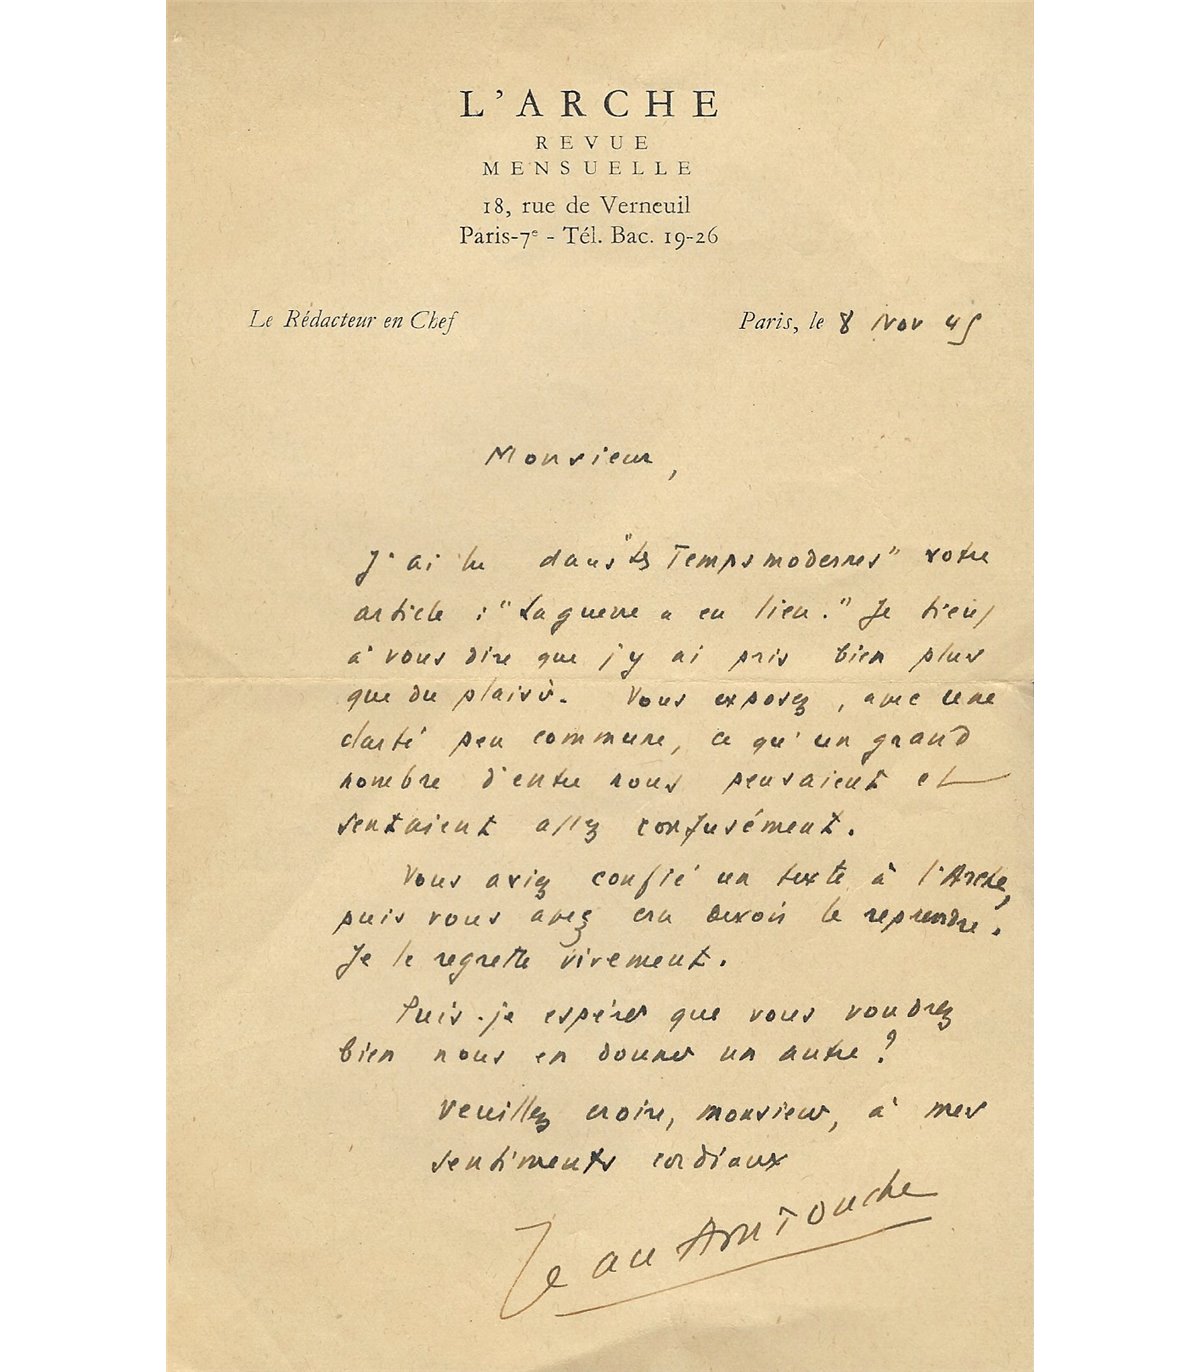 L'ARCHE
REVUE
MENSUELLE
18, rue de Verneuil
Paris-7e - Tél. Bac. 19-26
Le Rédacteur en Chef
Paris, le 8 Nov 45
Monsieur,
J'ai lu dans "les Temps modernes" votre
article : "La guerre a eu lieu." Je tiens
à vous dire que j'y ai pris bien plus
que du plaisir. Vous exposez, avec une
clarté peu commune, ce qu'un grand
nombre d'entre nous pensaient et
sentaient assez confusément.
Vous aviez confié un texte à l'Arche,
puis vous avez cru devoir le reprendre.
Je le regrette vivement.
Puis-je espérer que vous voudrez
bien nous en donner un autre ?
Veuillez croire, monsieur, à mes
sentiments cordiaux
Jean Amrouche